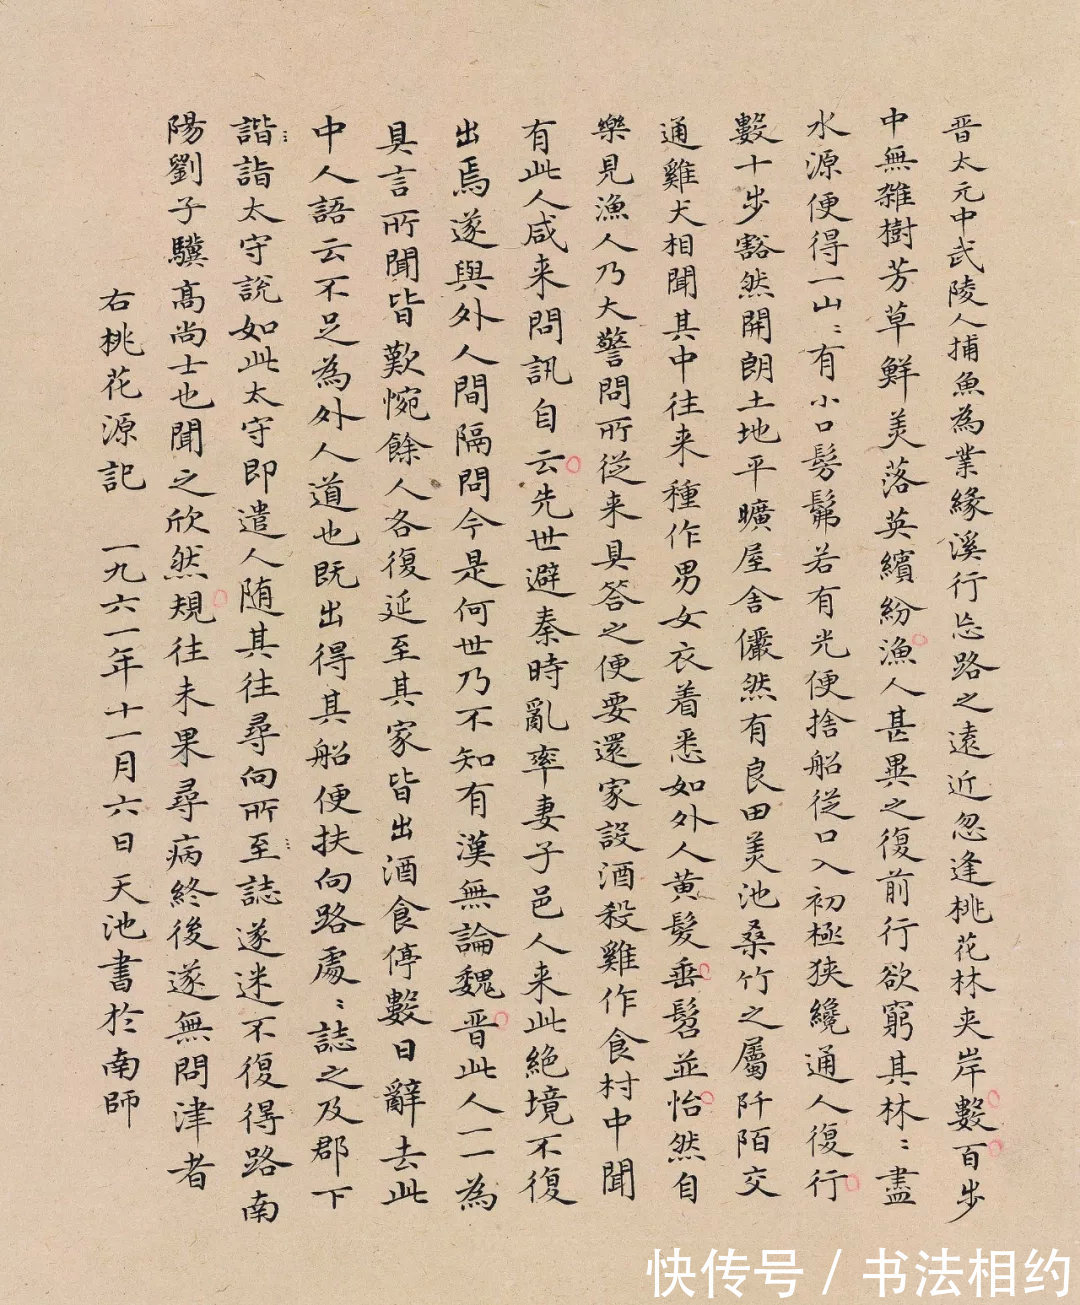 晉太元中武陵人捕魚為業緣溪行忘路之遠近忽逢桃花林夾岸數百步
中無雜樹芳草鮮美落英繽紛漁人甚異之復前行欲窮其林〻盡
水源便得一山〻有小口髣髴若有光便捨船從口入初極狹纔通人復行
數十步豁然開朗土地平曠屋舍儼然有良田美池桑竹之屬阡陌交
通雞犬相聞其中往来種作男女衣着悉如外人黄髮垂髫並怡然自
樂見漁人乃大警問所從来具答之便要還家設酒殺雞作食村中聞
有此人咸来問訊自云先世避秦時亂率妻子邑人来此絕境不復
出焉遂與外人間隔問今是何世乃不知有漢無論魏晉此人一一為
具言所聞皆歎惋餘人各復延至其家皆出酒食停數日辭去此
中人語云不足為外人道也既出得其船便扶向路處〻誌之及郡下
諧詣太守說如此太守即遣人随其往尋向所至誌遂迷不復得路南
陽劉子驥髙尚士也聞之欣然規往未果尋病終後遂無問津者
右桃花源記 一九六一年十一月六日天池書於南師
快传号 / 书法相约